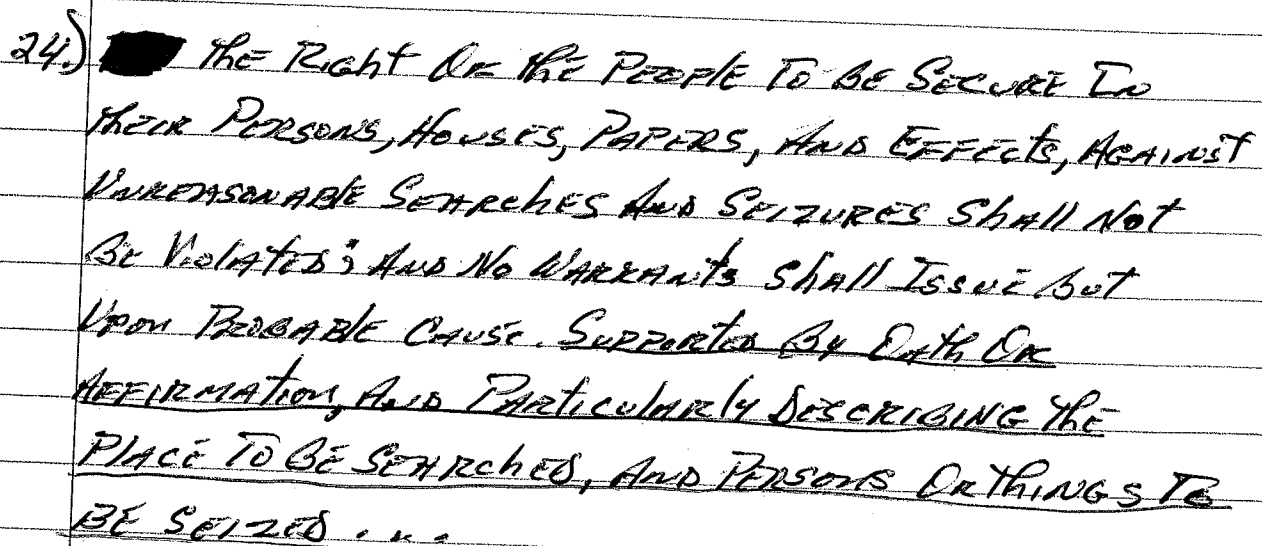 24.) The Right Of the People To Be Secure In
their Persons, Houses, Papers, And Effects, Against
Unreasonable Searches And Seizures Shall Not
Be Violated; And No Warrants Shall Issue but
Upon Probable Cause. Supported By Oath Or
Affirmation, And Particularly Describing The
Place To Be Searched, And Persons Or Things To
Be Seized . . .